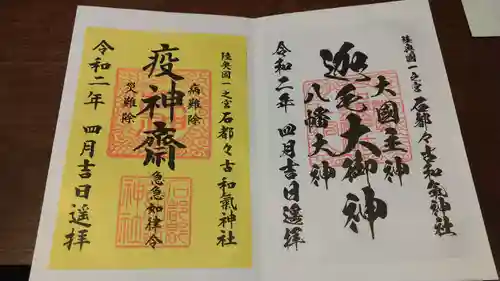 陸奥國一之宮 石都々古和氣神社
大國主神
迦毛大御神
八幡大神
令和二年 四月吉日遥拝
陸奥國一之宮 石都々古和氣神社
病難除
疫神齋 急急如律令
災難除
令和二年 四月吉日遥拝